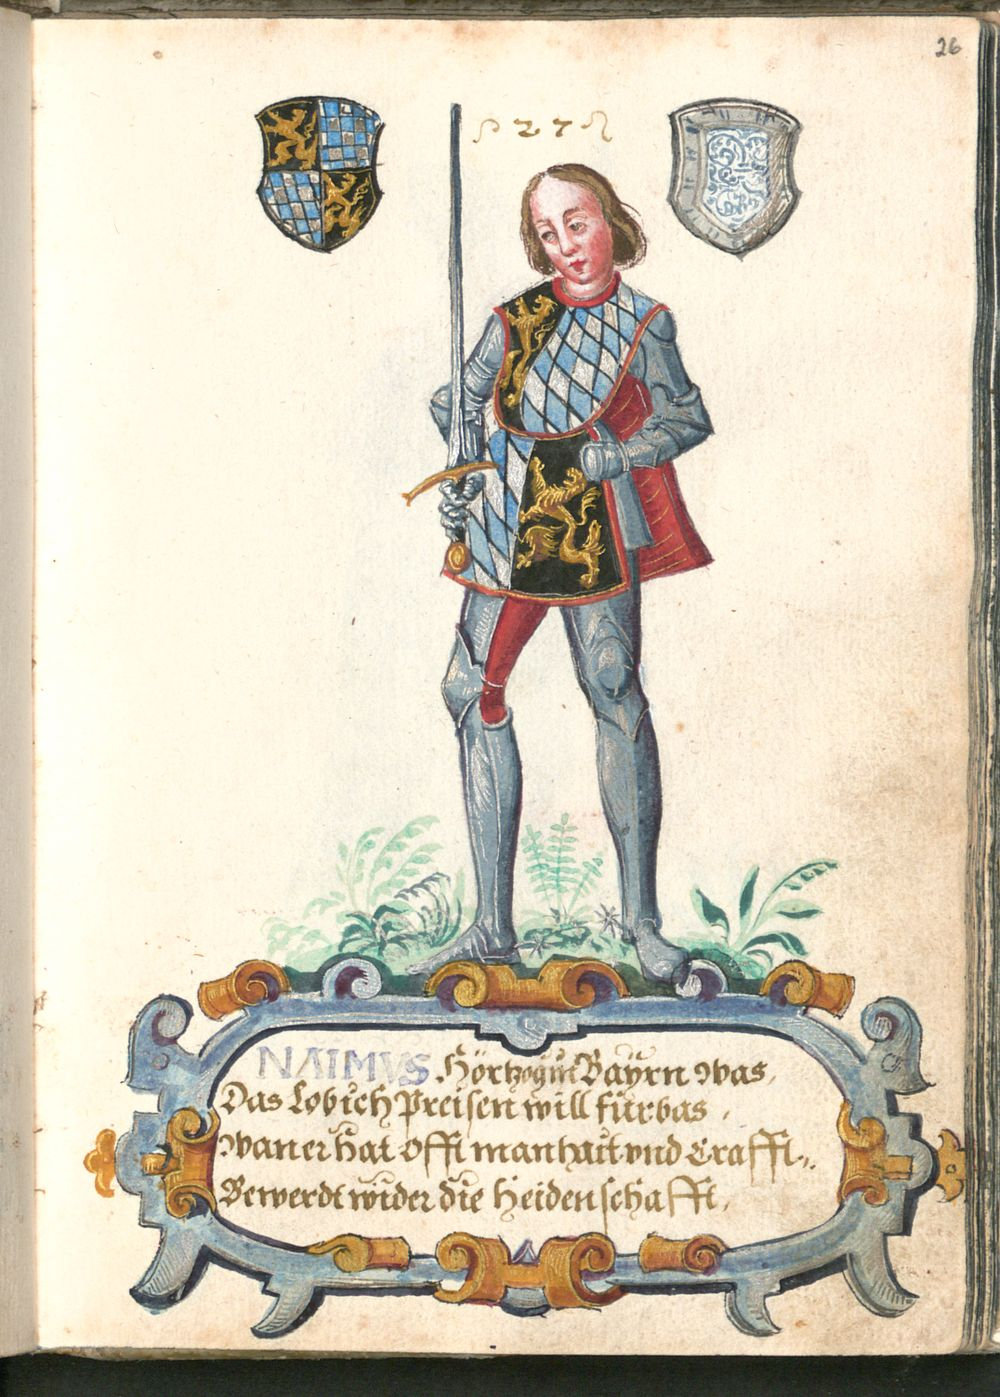 26
527
NAIMVS Hörtzog in Bayrn was,
Das Lob ich Preisen will fürbas,
wan er hat offt manhait vnd Crafft,,
Bewerdt wider die Heidenschafft,